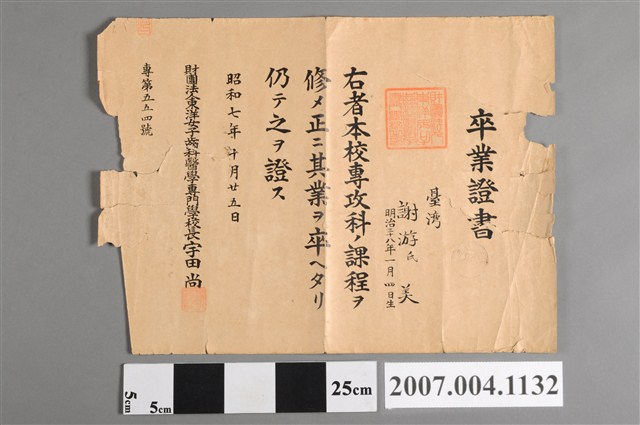 卒業證書
臺湾
謝游氏美
明治三十八年一月四日生
右者本校專攻科ノ課程ヲ
修メ正ニ其業ヲ卒ヘタリ
仍テ之ヲ證ス
昭和七年十月廿五日
財團法人東洋女子歯科醫學專門學校長宇田尚
專第五五四號
5cm
5cm
25cm
2007.004.1132